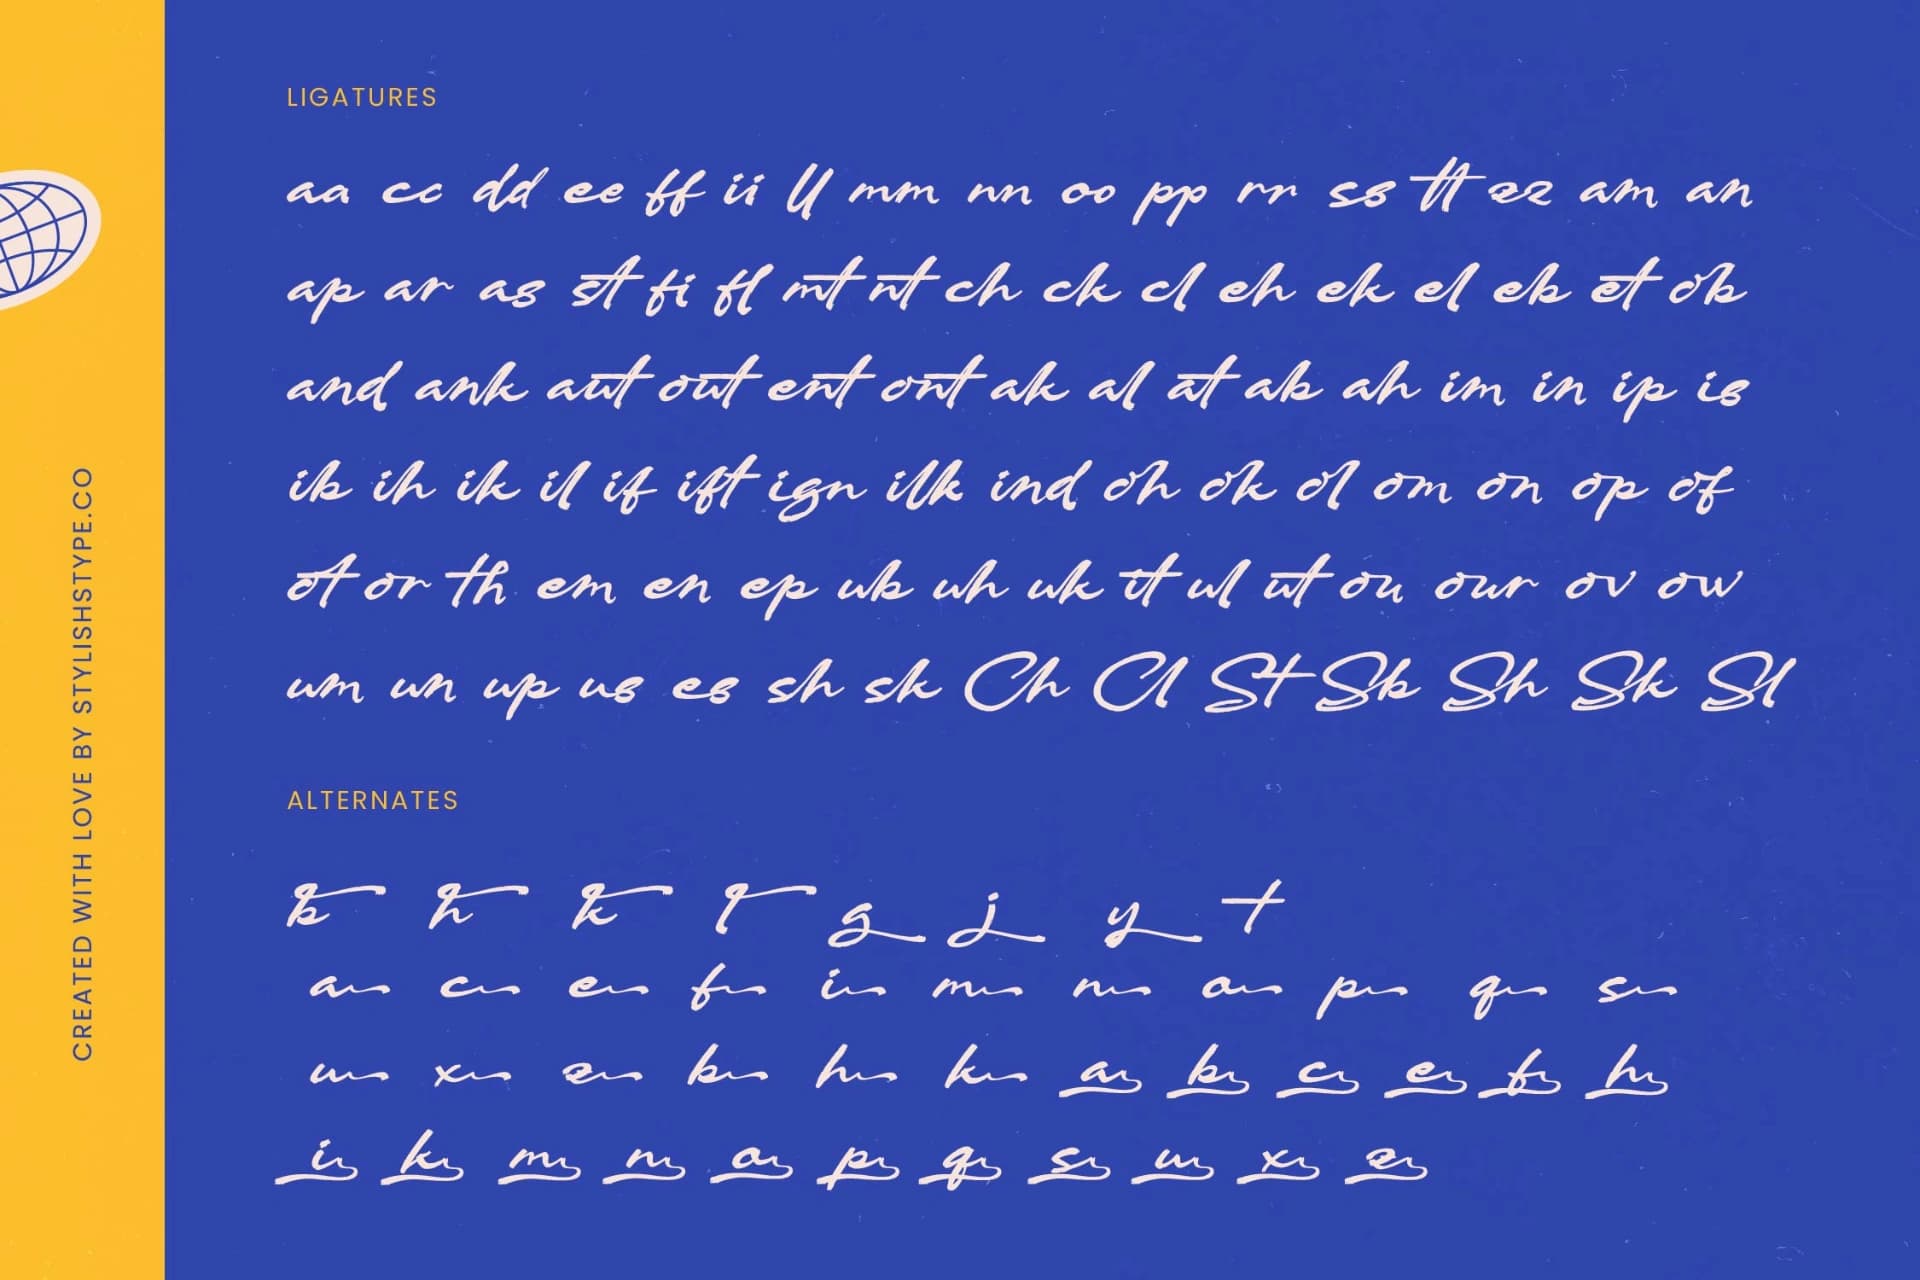 LIGATURES
aa cc dd ee ff ii ll mm nn oo pp rr ss tt zz am an
ap ar as st fi fl mt nt ch ck cl eh ek el eb et ob
and ank aut out ent ont ak al at ab ah im in ip is
ib ih ik il if ift ign ilk ind oh ok ol om on op of
ot or th em en ep ub uh uk it ul ut ou our ov ow
um un up us es sh sk Ch Cl St Sb Sh Sk Sl
ALTERNATES
b h k l g j y t
a c e f i m n o p q s
u x z b h k a b c e f h
i k m n o p q s u x z
CREATED WITH LOVE BY STYLISHSTYPE.CO